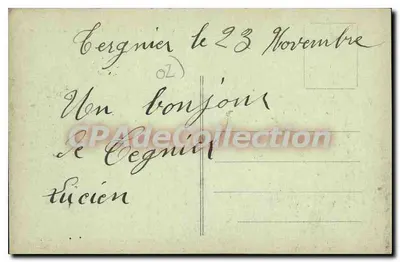 Tergnier le 23 Novembre
02)
Un bonjour
CPAdeCollection
de Tegnier
Lucien